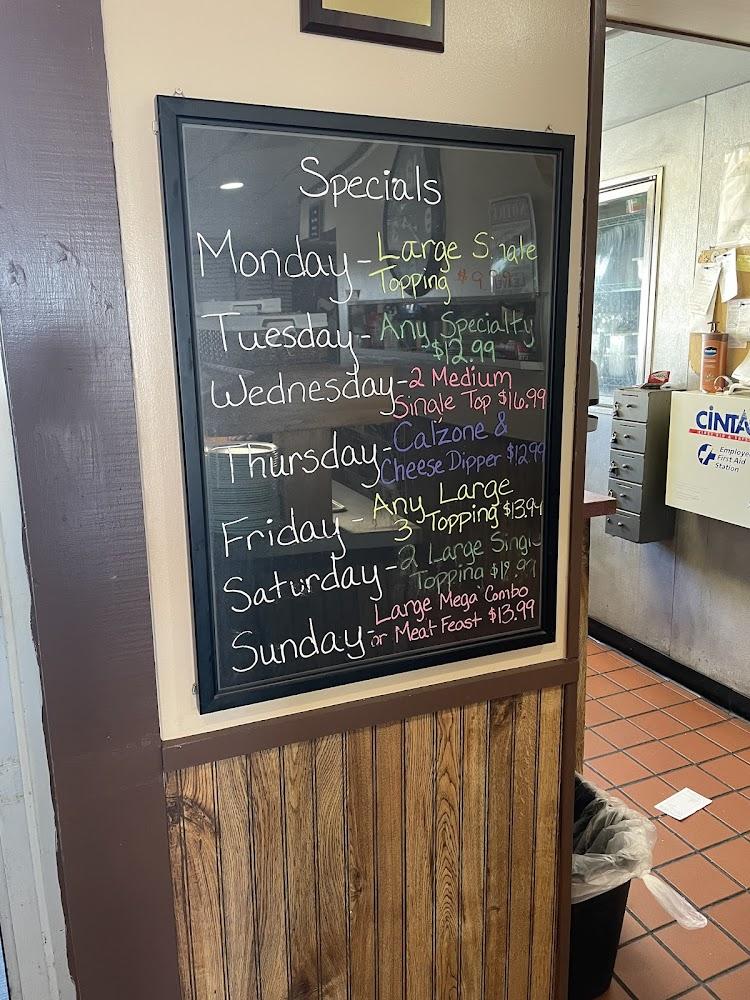 Specials
Monday - Large Single
Topping $9.99
Tuesday - Any Specialty
$12.99
Wednesday - 2 Medium
Single Top $16.99
Thursday - Calzone &
Cheese Dipper $12.99
Friday - Any Large
3 Topping $13.99
Saturday - 2 Large Single
Topping $19.99
Sunday - Large Mega Combo
or Meat Feast $13.99
CINTA
FIRST AID &
Employee
First Aid
Station
Vaseline